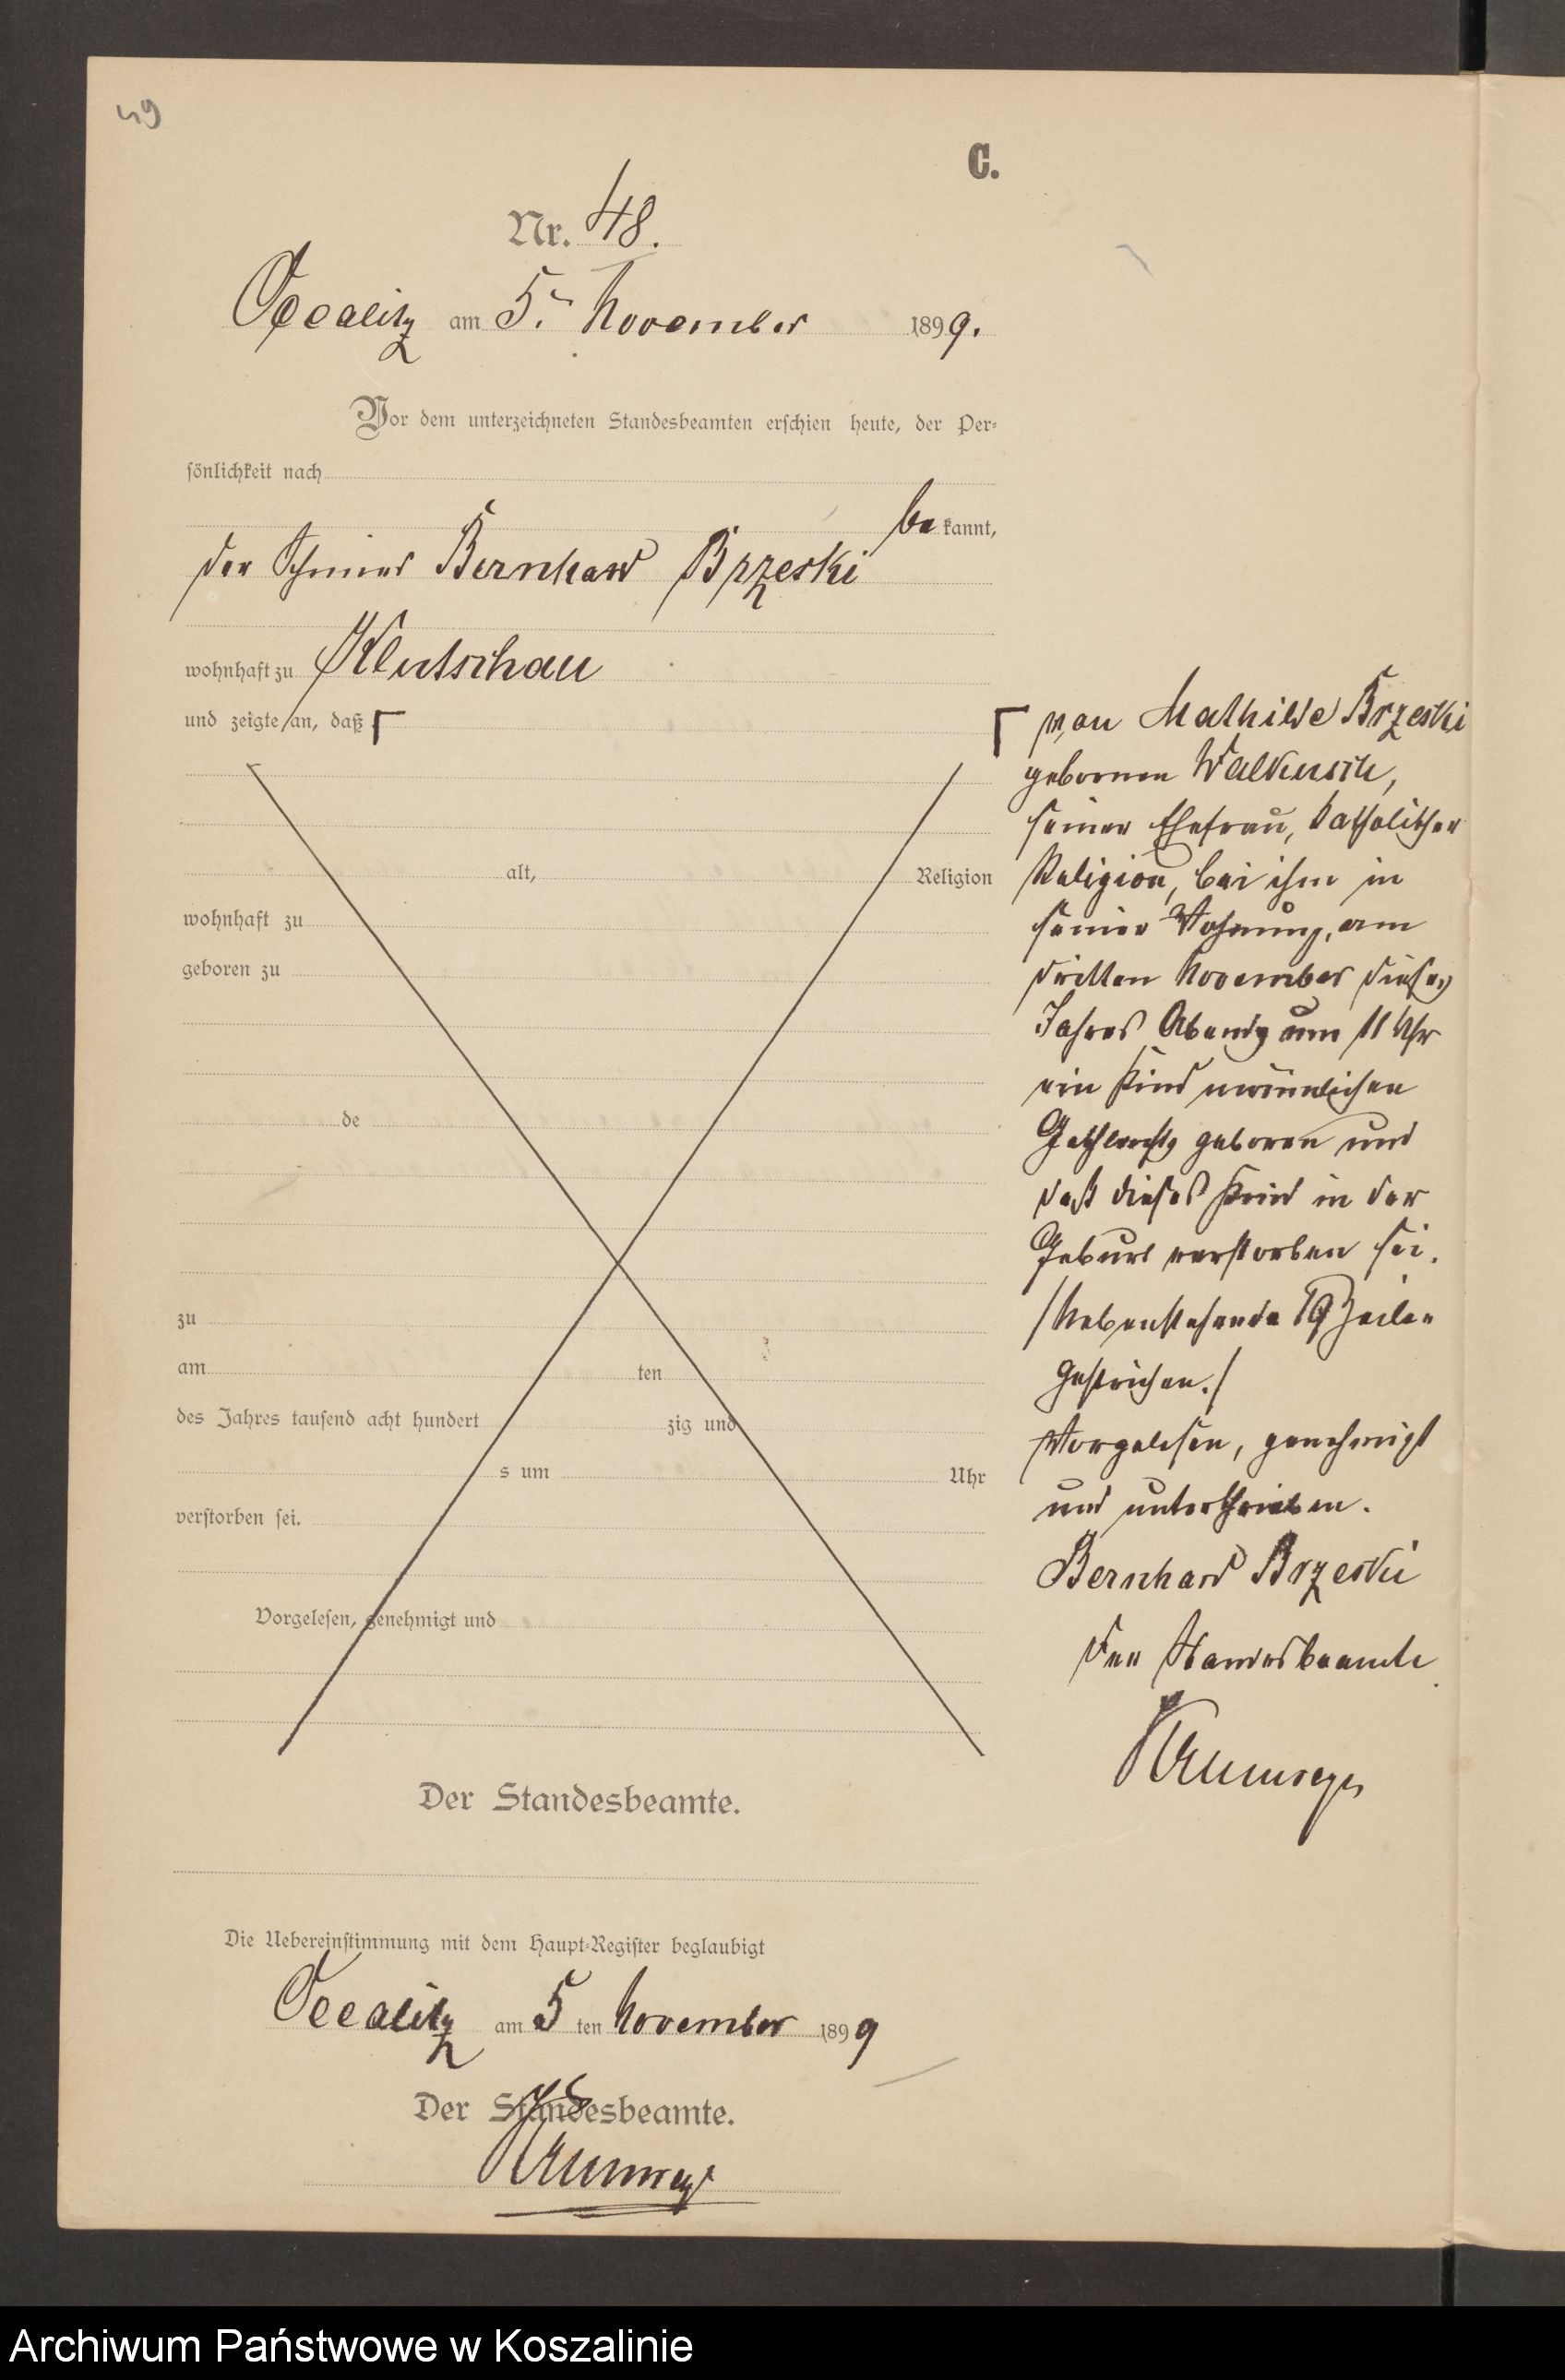 49
C.
Nr. 48.
Occalitz am 5ten November 1899.
Vor dem unterzeichneten Standesbeamten erschien heute, der Per-
sönlichkeit nach
be kannt,
der Bernhard Brzeski
wohnhaft zu Klutschau
und zeigte an, daß Γ
alt, Religion
wohnhaft zu
geboren zu
de
zu
am ten
des Jahres tausend acht hundert zig und
s um Uhr
verstorben sei.
Vorgelesen, genehmigt und
Der Standesbeamte.
Γ von Mathilde Brzeski
gebornen Walkusch,
seiner Ehefrau, katholischer
Religion, bei ihm in
seiner Wohnung, am
dritten November dieses
Jahres Abends um 11 Uhr
ein Kind männlichen
Geschlechts geboren und
daß dieses Kind in der
Geburt verstorben sei.
/Nebenstehende 19 Zeilen
gestrichen./
Vorgelesen, genehmigt
und unterschrieben.
Bernhard Brzeski
Der Standesbeamte
Die Uebereinstimmung mit dem Haupt-Register beglaubigt
Occalitz am 5 ten November 1899
Der Standesbeamte.
Archiwum Państwowe w Koszalinie